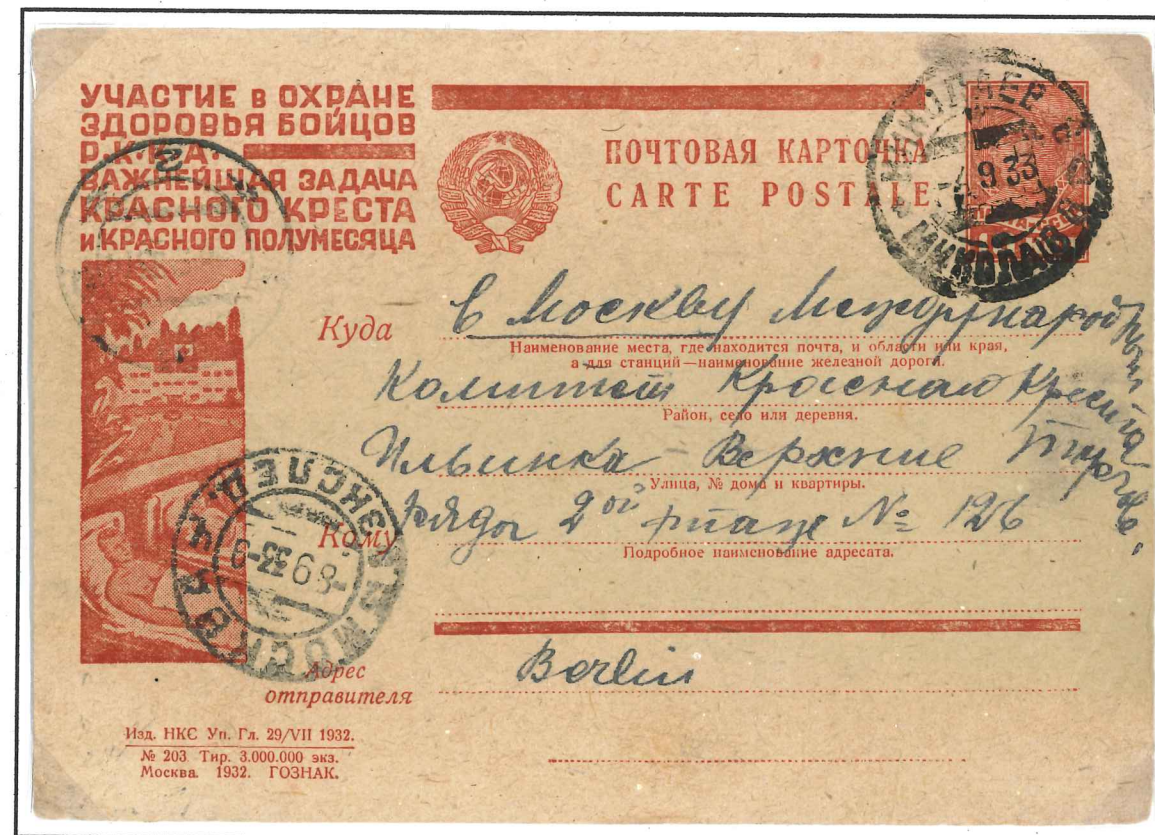 УЧАСТИЕ в ОХРАНЕ
ЗДОРОВЬЯ БОЙЦОВ
Р.К.К.А.
ВАЖНЕЙШАЯ ЗАДАЧА
КРАСНОГО КРЕСТА
и КРАСНОГО ПОЛУМЕСЯЦА
ПОЧТОВАЯ КАРТОЧКА
CARTE POSTALE
НИКОЛАЕВ
9 33
МИКОЛАЇВ
Куда
в Москву Международный
Наименование места, где находится почта, и области или края,
а для станций—наименование железной дороги.
Комитет Красного Креста
Район, село или деревня.
Ильинка - Верхние Торгов.
Улица, № дома и квартиры.
Кому
ряды 2ой этаж № 126
Подробное наименование адресата.
МОСКВА
ЭКСПЕД.
-8 9 33-9
Адрес
отправителя
Berlin
Изд. НКС Уп. Гл. 29/VII 1932.
№ 203 Тир. 3.000.000 экз.
Москва. 1932. ГОЗНАК.